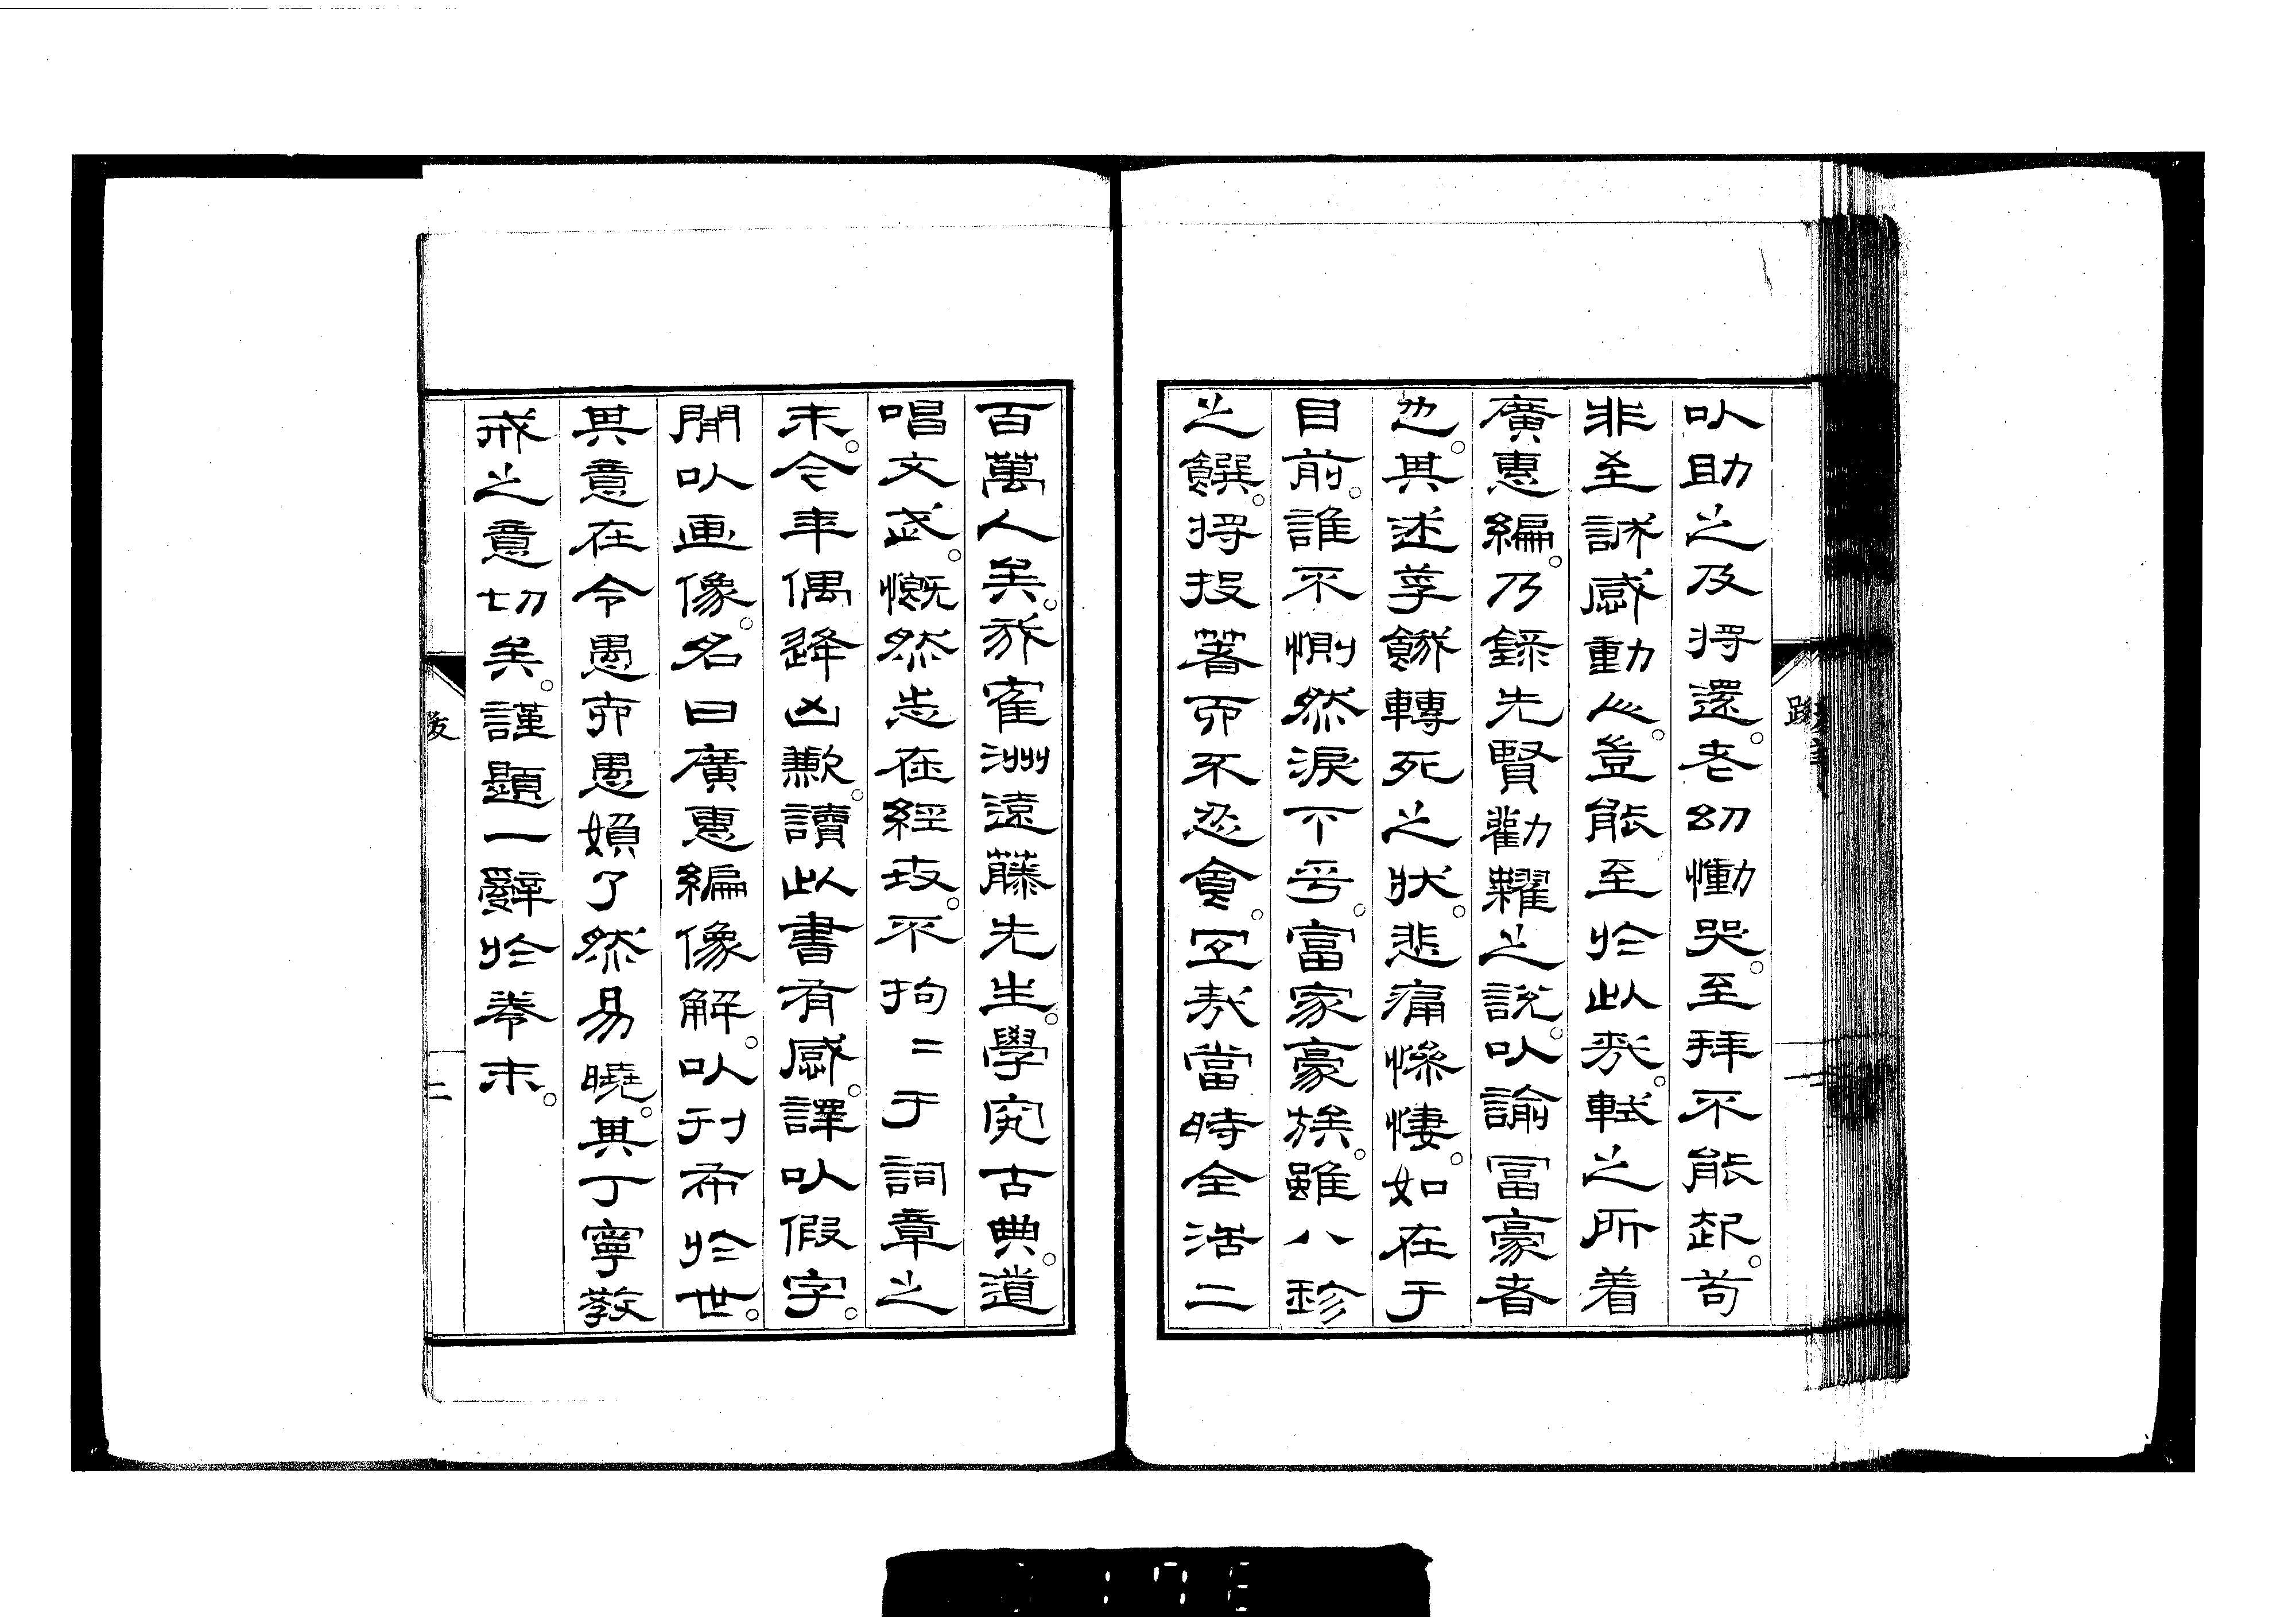 以助之及将還。老幼慟哭。至拜不能起。苟
非至誠感動人心。豈能至於此哉。軾之所着
廣惠編。乃錄先賢勸糶之說。以諭冨豪者
也。其述莩餓轉死之狀。悲痛慘悽。如在于
目前。誰不惻然淚下乎。富家豪族。雖八珍
之饌。将投著而不忍食。宜哉當時全活二
百萬人矣。茲隺洲遠藤先生。學究古典。道
唱文武。慨然志在經攷。不拘〻于詞章之
末。今年偶逢凶歉。讀此書有感。譯以假字
間以画像。名曰廣惠編像解。以刊布於世。
其意在令愚而愚婦了然易曉。其丁寧教
戒之意切矣。謹題一辭於卷末。
跋
二